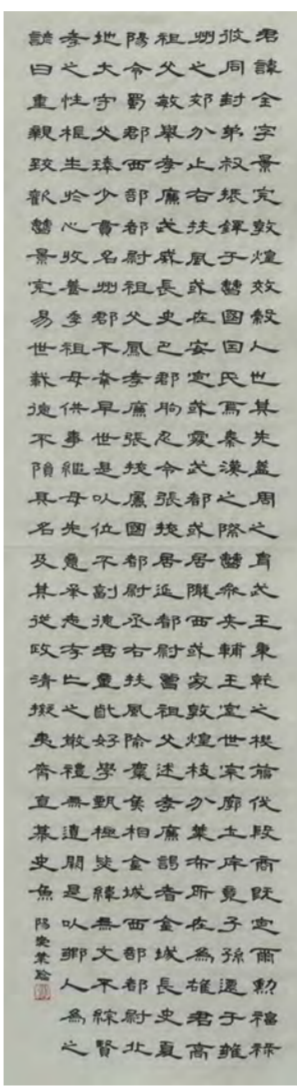 君諱全字景完敦煌效穀人也其先蓋周之冑武王秉乾之機翦伐殷商既定爾勳福祿
攸同封弟叔振鐸于曹國因氏焉秦漢之際曹參夾輔王室世宗廓土斥竟子孫遷于雍
州之郊分止右扶風或在安定或處武都或居隴西或家敦煌枝分葉布所在為雄君高
祖父敏舉孝廉武威長史巴郡朐忍令張掖居延都尉曾祖父述孝廉謁者金城長史夏
陽令蜀郡西部都尉祖父鳳孝廉張掖屬國都尉丞右扶風隃麋侯相金城西部都尉北
地大守父琫少貫名州郡不幸早世是以位不副德君童齔好學甄極毖緯無文不綜賢
孝之性根生於心收養季祖母供事繼母先意承志存亡之敬禮無遺闕是以鄉人為之
諺曰重親致歡曹景完易世載德不隕其名及其從政清擬夷齊直慕史魚